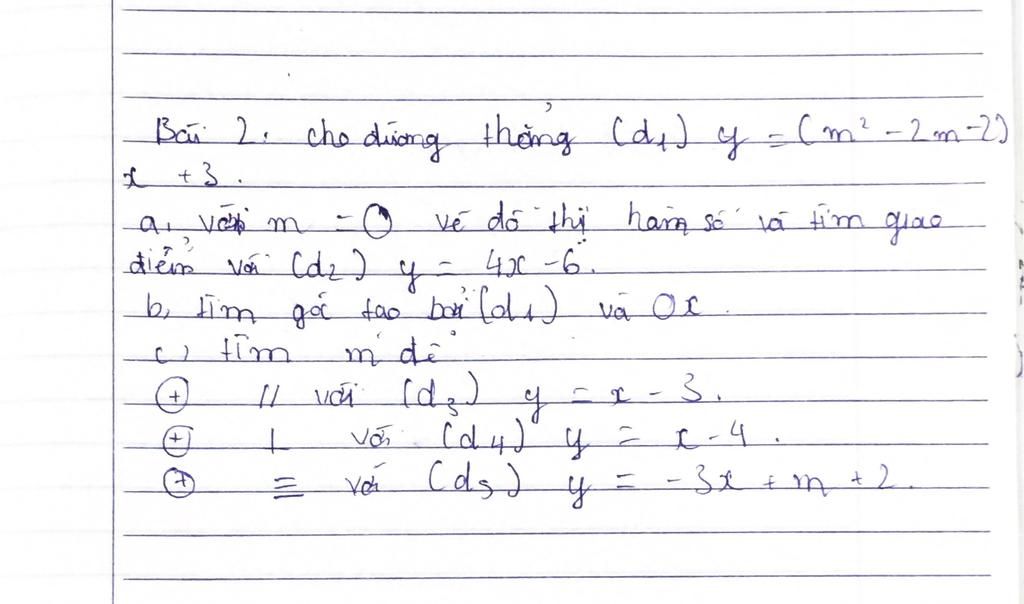 Bài 2. cho đường thẳng (d1) y = (m² - 2m - 2)
x + 3.
a, với m = 0 vẽ đồ thị hàm số và tìm giao
điểm với (d2) y = 4x - 6.
b, tìm góc tạo bởi (d1) và Ox.
c, tìm m để
⊕ // với (d3) y = x - 3.
⊕ ⊥ với (d4) y = x - 4.
⊕ ≡ với (d5) y = -3x + m + 2.